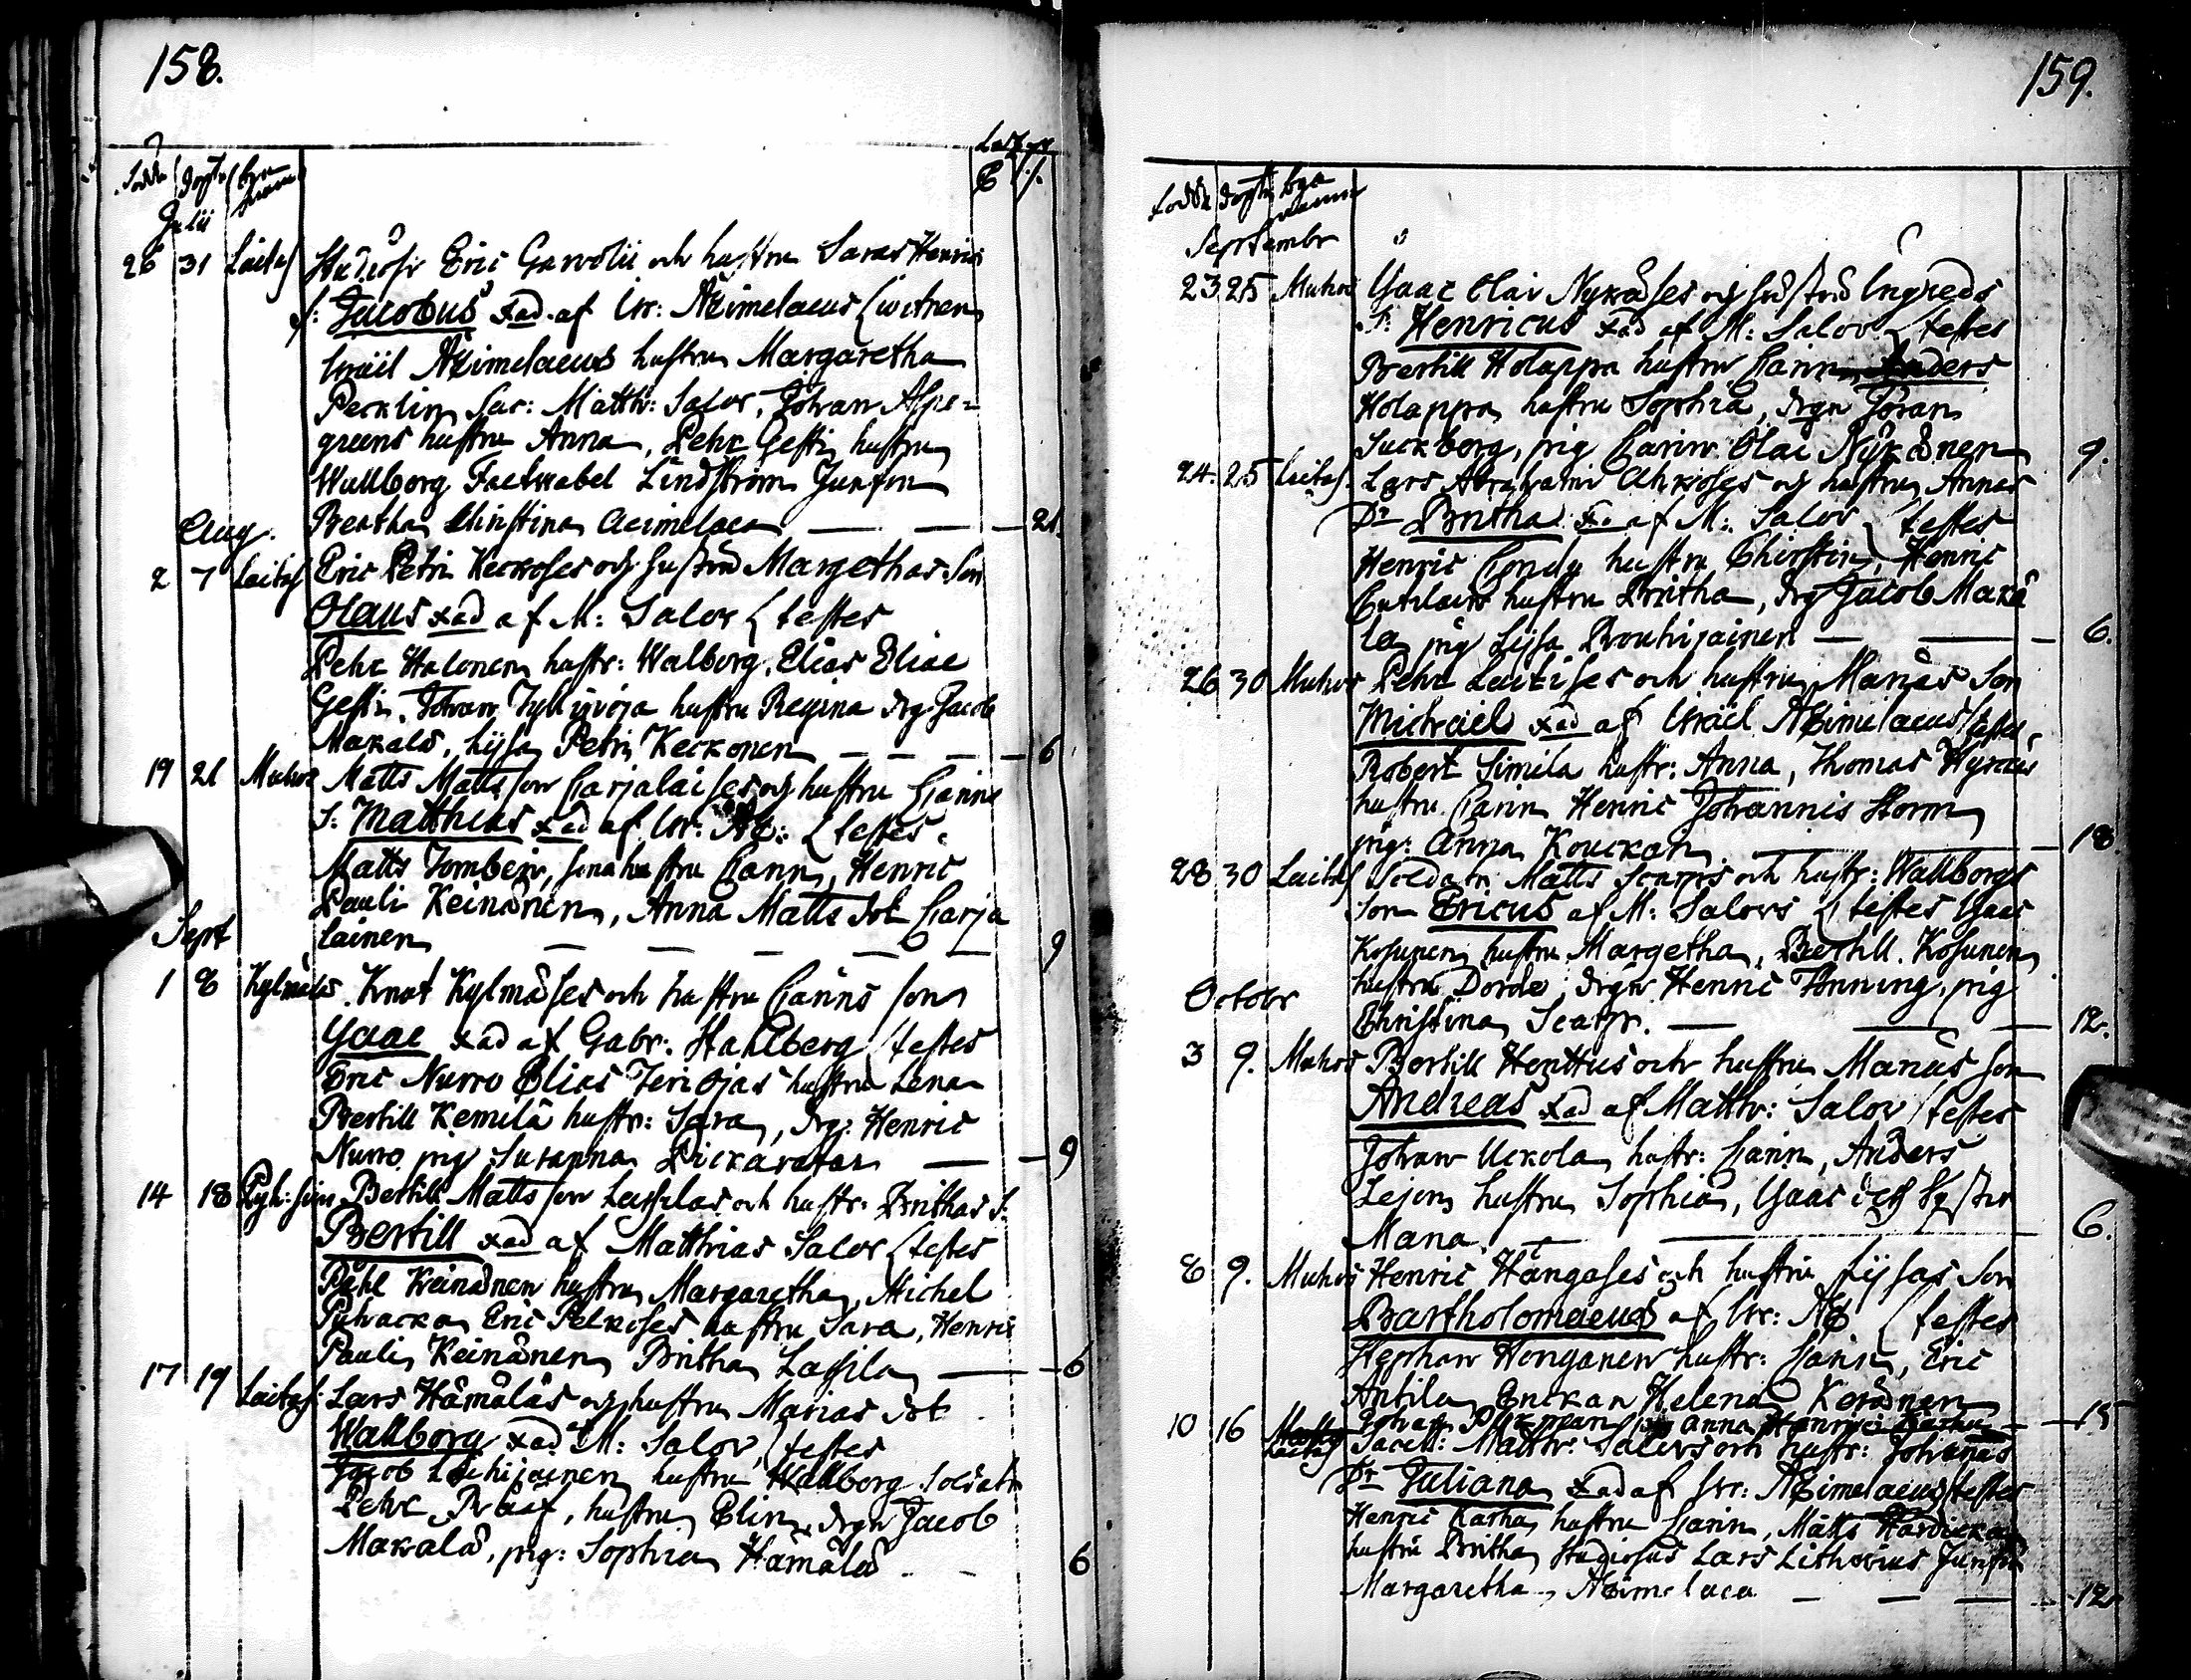 158.
Födde döpte Bya namn
Julii
26 31 Laitas Studiosi Eric Garvolii och hustru Saras Henrici
s: Jacobus xad. af Isr: Æimelaeus
Israël Æimelaeus hustru Margaretha
Pecklin, Sac: Matth: Salov, Johan Alpe=
greens hustru Anna, Pehr Gesti hustru
Wallborg Lindström Junfru
Beatha Christina Aeimelaea — — 21
Aug.
2 7 Laitas Eric Petri Keckoses och hustru Margethas Son
Olaus xad af M: Salov testes
Pehr Halonen hustr: Walborg, Elias Eliae
Gesti, Johan hustru Regina drg Jacob
Makala, Lijsa Petri Keckonen — — — 6
19 21 Muhos Matts Mattsson Carjalaises och hustru Carins
S: Matthias xad af Isr: Æ: testes
Matts Tomberi, hustru Carin, Henric
Pauli Keinänen, Anna Matts dot Carja
lainen — — — — — 9
Sept
1 8 Kylmälä Knut Kylmäses och hustru Carins son
Isaac xad af Gabr: Stahlberg testes
Eric Nurro Elias Jeri Ojas hustru Lena
Bertill Kemilä hustr: Sara, drg: Henric
Nurro pig Susanna Pickarainen — — 9
14 18 Bertill Mattsson Lassilas och hustr: Brithas S:
Bertill xad af Matthias Salov testes
Pehl Keinänen hustru Margaretha, Michel
Puhacka Eric Pelkoses hustru Sara, Henric
Pauli Keinänen Britha Lassila — 6
17 19 Laitas: Lars Hämäläs och hustru Marias dot
Wallborg xad af M: Salov, testes
Jacob hustru Wallborg Soldatn
Pehr Raaf, hustru Elin, drgn Jacob
Makala, pig: Sophia Hämälä 6
159.
Födde döpte Bya namn
Septembr
23 25 Muhos Isaac Olai Nykäses och hustru Ingreds
S: Henricus xad af M: Salov testes
Bertill Holappa hustru Carin, Anders
Holappa hustru Sophia, drgn Jöran
Suckborg, pig Carin Olai Nykänen 9.
24. 25 Laitas. Lars Abrahami Ahkioses och hustru Annas
Dr Britha xad af M: Salov testes
Henric Condu hustru Chirstin, Henric
hustru Britha, drg Jacob Maka
la pig Lijsa Brouhijainen — — 6.
26 30 Muhos Pehr Leutises och hustru Marias Son
Michaël xad af Israël Æimelaeus testes
Robert Simila hustr: Anna, Thomas Hyrckäs
hustru Carin Henric Johannis Storm
pig: Anna Kouckari — 18
28 30 Laitas Soldatn Matts Scarps och hustr: Wallborgs
Son Ericus af M: Salov testes Isaac
Kosunen hustru Margetha, Bertill Kosunen
hustru Dorde, drgn Henric Tönning, pig
Christina Scarp. — — 12.
Octobr
3 9. Muhos Bertill Henttus och hustru Marias Son
Andreas xad af Matth: Salov testes
Johan Uckola hustr: Carin, Anders
Lejon hustru Sophia, Isaac
Maria. — — 6.
8 9. Muhos Henric Hängases och hustru Lijsas Son
Bartholomaeus af Isr: Æ testes
Stephan Honganen hustr: Carin, Eric
Antila Enckan Helena Keränen
Johan pig Anna Henrici — 15
10 16 Laitas Sacell: Matth: Salovs och hustr: Johanas
Dr Juliana xad af Isr: Æimelaeus testes
Henric Karhu hustru Carin, Matts
hustru Britha, Studiosus Lars Lithovius Junfru
Margaretha Æimelaea — — 12